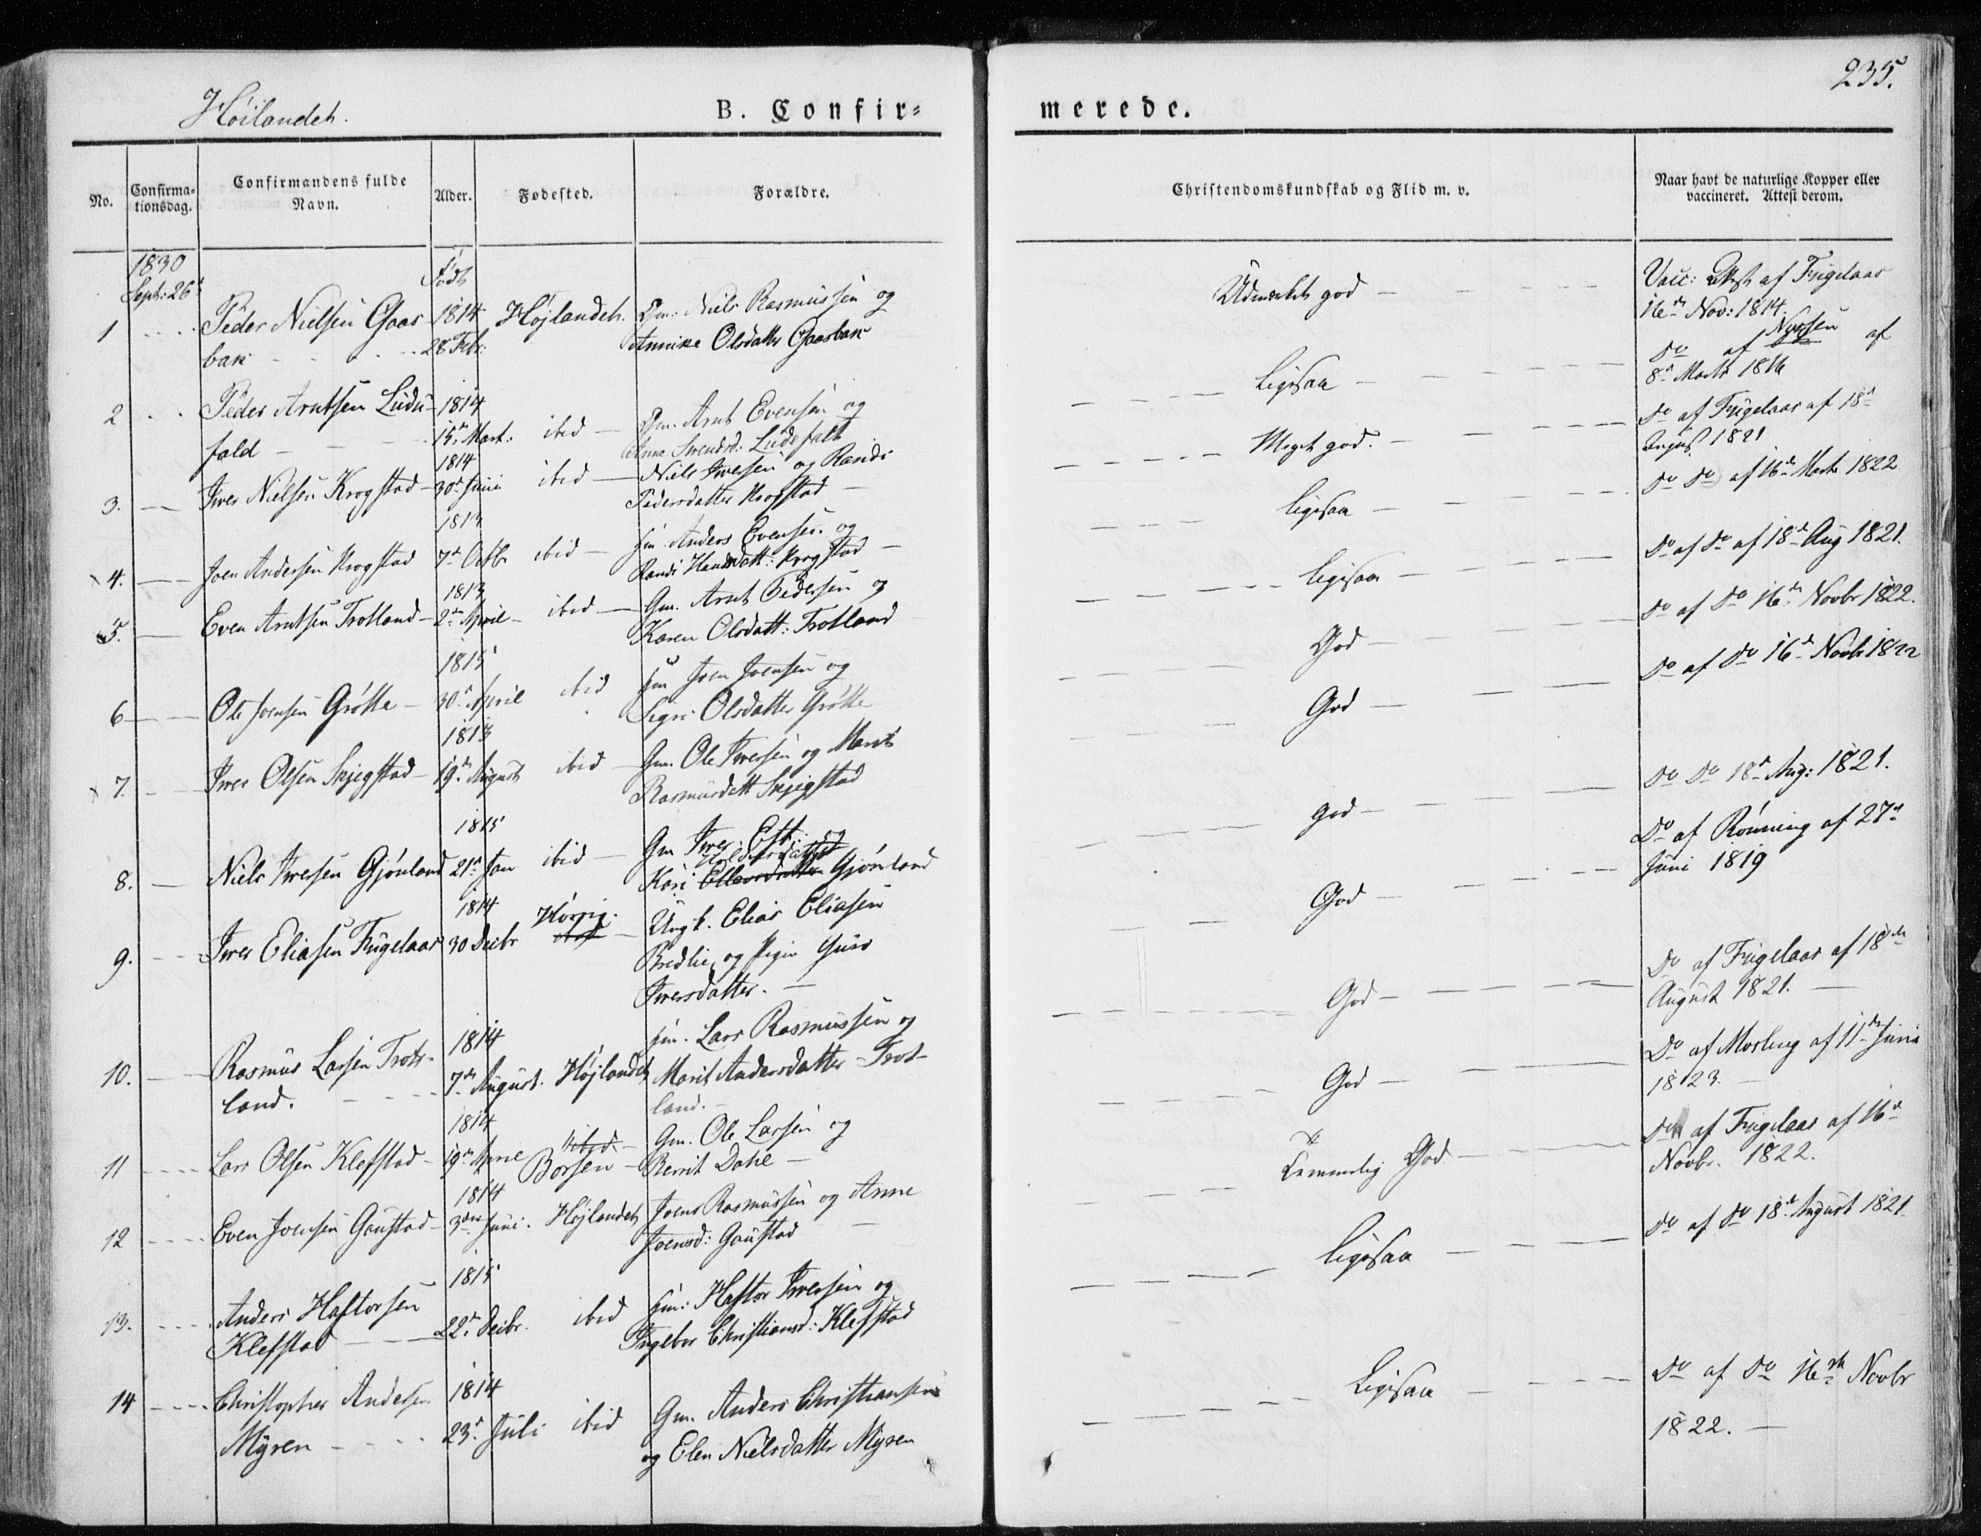 235.
Høilandet.
B. Confir-
merede.
No.
Confirma-
tionsdag.
Confirmandens fulde
Navn.
Alder.
Fødested.
Forældre.
Christendomskundskab og Flid m. v.
Naar havt de naturlige Kopper eller
vaccineret. Attest derom.
1830
Sept: 26
Født
1 Peder Nielsen Gaas 1814 Højlandet. Gm: Niels Rasmussen og
bak 28 Febr: Annike Olsdatter Gaasbak
Udmærket god
Vacc: Attest af Fugelaas
16de Nov: 1814.
2 Peder Arntsen Lude 1814
fald 15de Mart: ibid Gm. Arnt Evensen og
Anne Svendsd: Ludefald
Ligesaa
Do af Nyssen af
8de Marts 1816
3. Iver Nielsen Krogstad 1814
30te Juni ibid Niels Iversen og Randi
Pedersdatter Krogstad
Meget god.
Do af Fugelaas af 18de
August 1821
4. Joen Andersen Krogstad 1813
7de Octbr ibid Anders Evensen og
Randi Hansdatt: Krogstad
ligesaa
Do Do af 16de Marts 1822
5. Even Arntsen Trotland 1813
2den April ibid Gm. Arnt Pedersen og
Karen Olsdatt: Trotland
ligesaa
Do af Do af 18de Aug 1821.
6 Ole Joensen Grøtte 1815
30te April ibid Joen Joensen og
Sigri Olsdatter Grøtte
God
Do af Do 16de Novbr 1822.
7. Iver Olsen Skjegstad 1813
19de August ibid Gm. Ole Iversen og Marit
Rasmusdatt Skjegstad
God
Do af Do 16de Novbr 1822
8. Niels Iversen Gjønland 1815
21de Jan ibid Gm Iver
Kari Ellevsdatter Gjønland
god
Do Do 18de Aug: 1821.
9. Iver Eliasen Fugelaas 1814
30 Decbr ibid Ungk. Elias Eliasen
Bredlie, og Pigen Guro
Iversdatter.
God
Do af Rönning af 27de
Juni 1819
10. Rasmus Larsen Trot- 1814
land. 7de August. Højlandet Lars Rasmussen og
Marit Andersdatter Trot-
land.
God
Do af Fugelaas af 18de
August 1821.
11 Lars Olsen Klefstad 1814
19de April ibid Børsen Gm. Ole Larsen og
Berrit Dahl
God
Do af Morling af 11te Juni
1823.
12 Even Joensen Gaustad 1814
3die Juni. Højlandet Joens Rasmussen og Anne
Joensd: Gaustad
Temmelig God
Do af Fugelaas af 16de
Novbr. 1822.
13. Anders Haftorsen 1815
Klefstad 22de Decbr. ibid Haftor Iversen og
Ingebor Christiansd: Klefstad
ligesaa
Do af Do 18de August 1821.
14 Christopher Andersen 1814
Myren 23de Juli ibid Gm. Anders Christiansen
og Elen Nielsdatter Myren
Ligesaa
Do af Do 16de Novbr
1822.